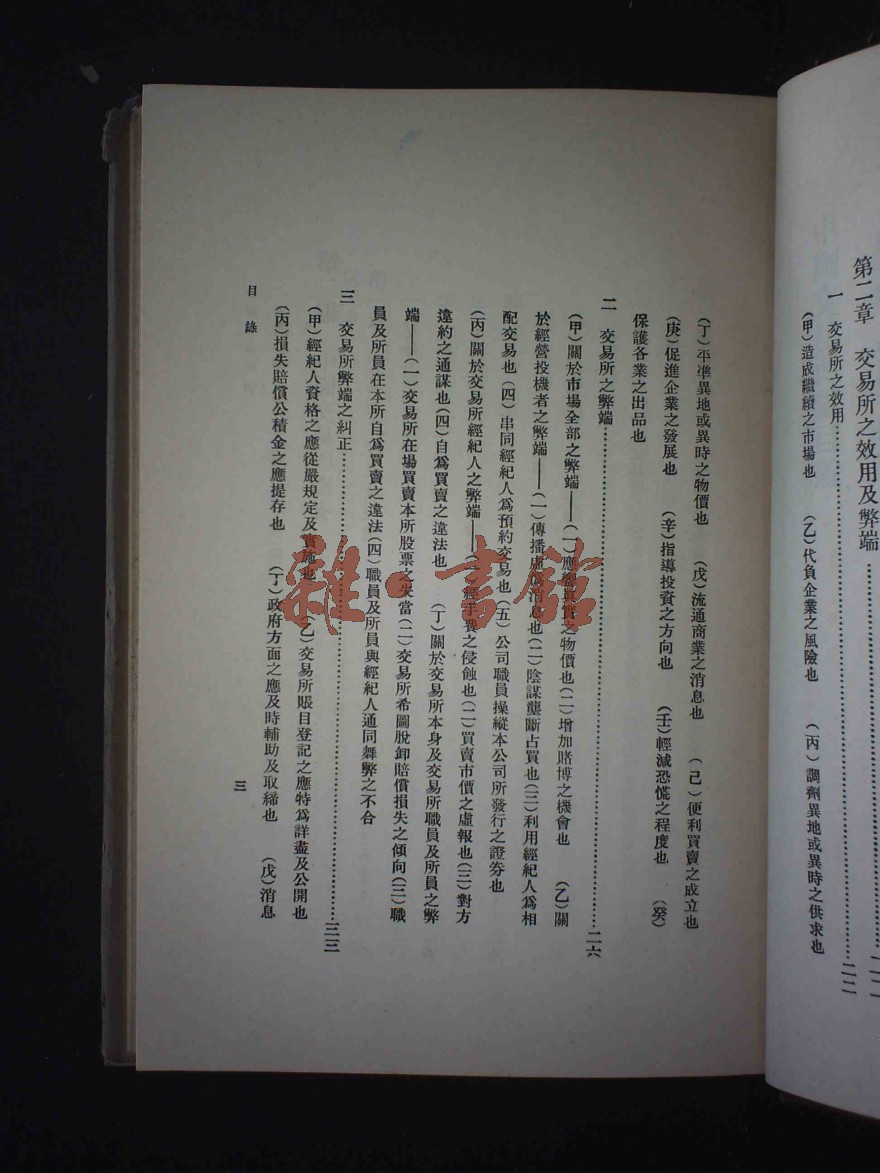 第二章　交易所之效用及弊端………二二
一　交易所之效用………二二
（甲）造成繼續之市場也　（乙）代負企業之風險也　（丙）調劑異地或異時之供求也
（丁）平準異地或異時之物價也　（戊）流通商業之消息也　（己）便利買賣之成立也
（庚）促進企業之發展也　（辛）指導投資之方向也　（壬）輕減恐慌之程度也　（癸）
保護各業之出品也
二　交易所之弊端………二六
（甲）關於市場全部之弊端——（一）應買賣之物價也（二）增加賭博之機會也　（乙）關
於經營投機者之弊端——（一）傳播虛偽消息也（二）陰謀壟斷占買也（三）利用經紀人爲相
配交易也（四）串同經紀人爲預約交易也（五）公司職員操縱本公司所發行之證券也
（丙）關於交易所經紀人之弊端——（一）經手費之侵蝕也（二）買賣市價之虛報也（三）對方
違約之通謀也（四）自爲買賣之違法也　（丁）關於交易所本身及交易所職員及所員之弊
端——（一）交易所在場買賣本所股票之失當（二）交易所希圖脫卸賠償損失之傾向（三）職
員及所員在本所自爲買賣之違法（四）職員及所員與經紀人通同舞弊之不合
三　交易所弊端之糾正………三三
（甲）經紀人資格之應從嚴規定及實施也　（乙）交易所賬目登記之應特爲詳盡及公開也
（丙）損失賠償公積金之應提存也　（丁）政府方面之應及時輔助及取締也　（戊）消息
目錄
三
雜·書館